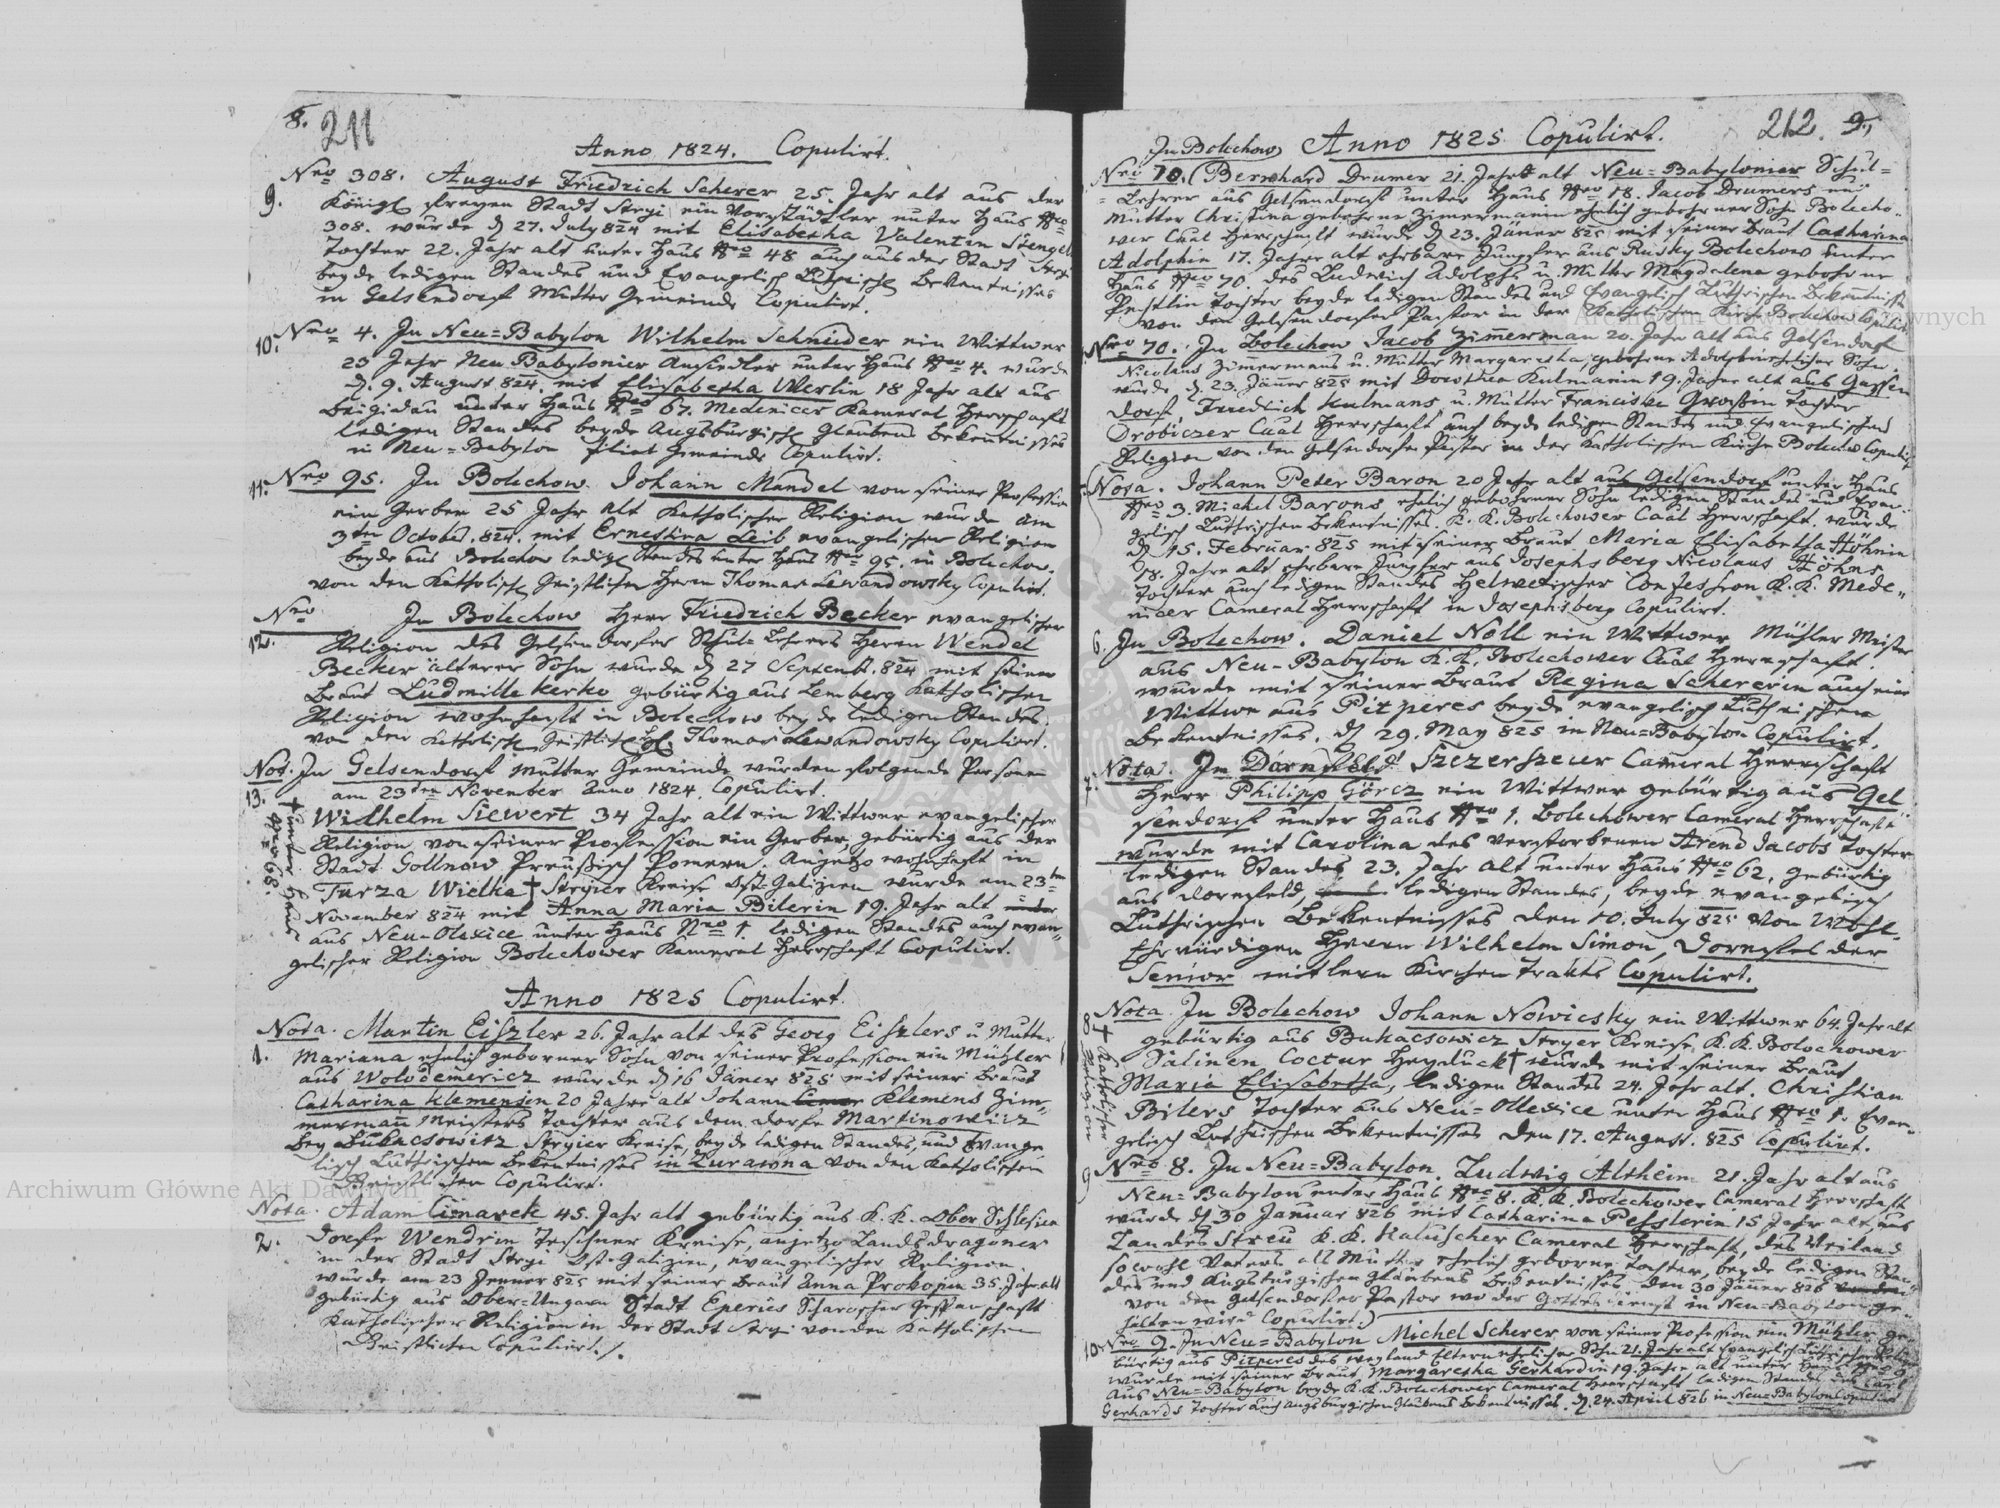 8. 211
Anno 1824. Copulirt.
Nro 308. August Friedrich Scherer 25. Jahr alt aus der
9. Königl freyen Stadt Stryi ein Vorstädtler unter Haus Nro
308. wurde d 27. July 824 mit Elisabetha Valentin Stengel
Tochter 22. Jahr alt unter Haus Nro 48 auch aus der Stadt Stryi
beyde ledigen Standes und Evangelisch Lutrisch Bekentnisses
in Gelsendorf Mutter Gemeinde Copulirt.
10. Nro 4. In Neu=Babylon Wilhelm Schneider ein Wittwer
23 Jahr Neu Babylonier Ansiedler unter Haus Nro 4. wurde
d. 9. August 824. mit Elisabetha Werlin 18 Jahr alt aus
Brigidau unter Haus Nro 67. Medenicer Kameral Herrschaft
ledigen Standes beyde Augsburgisch Glaubens Bekentnisses
in Neu=Babylon filial Gemeinde Copulirt.
11. Nro 95. In Bolechow Johann Mandel von seiner Profession
ein Gerber 25 Jahr alt Katholischer Religion wurde am
3ten October. 824. mit Ernestina Leib evangelischer Religion
beyde aus Bolechow ledig Standes unter Haus Nro 95. in Bolechow.
von den Katholisch Geistlichen Herrn Thomas Lewandowsky Copulirt.
Nro In Bolechow Herr Friedrich Becker evangelischer
12. Religion des Gelsendorfer Schul=Lehrers Herrn Wendel
Becker älterer Sohn wurde d 27 Septemb. 824 mit seiner
Braut Ludmilla Kerko gebürtig aus Lemberg Katholischer
Religion wohnhaft in Bolechow beyde ledigen Standes.
von den Katholisch Geistlich H. Thomas Lewandowsky Copulirt.
Not. In Gelsendorf Mutter Gemeinde wurden folgende Personen
13. am 23ten November Anno 1824. Copulirt.
Wilhelm Siewert 34 Jahr alt ein Wittwer evangelischer
Religion von seiner Profession ein Gerber, gebürtig aus der
Stadt Gollnow Preußisch Pomern. Anjetzo wohnhaft in
Turza Wielka † Stryier Kreise Ost=Galizien wurde am 23ten
November 824 mit Anna Maria Bilerin 19. Jahr alt
aus Neu=Olexice unter Haus Nro 1. ledigen Standes auch evan=
gelischer Religion Bolechower Kameral Herrschaft Copulirt.
† unter Haus
Nro 68.
Anno 1825 Copulirt.
Nota. Martin Eiszler 26. Jahr alt des Georg Eiszlers u Mutter
1. Mariana ehelich geborner Sohn von seiner Profession ein Mühler
aus Wolodemericz wurde d 16 Jäner 825 mit seiner Braut
Catharina Klemensin 20 Jahre alt Johann Klemens Zim=
mermann Meisters Tochter aus dem dorfe Martinowicz
bey Bukacsowitz Stryier Kreise, beyde ledigen Standes, und Evange
lisch Lutrischen Bekentnisses in Zurawna von den Katholischen
Geistlichen Copulirt.
Nota. Adam Cimarek 45. Jahr alt gebürtig aus K. K. Ober Schlesien
2. dorfe Wendrin Teschner Kreise, anjetzo Landsdragoner
in der Stadt Stryi Ost=Galizien, evangelischer Religion
wurde am 23 Jenner 825 mit seiner Braut Anna Prokopin 35 Jahr alt
gebürtig aus Ober=Ungarn Stadt Eperies Scharoscher Gespanschaft
Katholischer Religion in der Stadt Stryi von den Katholischen
Geistlichen Copulirt.
212. 9.
In Bolechow Anno 1825 Copulirt.
Nro 10. Bernhard Drumer 21. Jahr alt Neu=Babylonier Schul=
=Lehrer aus Gelsendorf unter Haus Nro 18. Jacob Drumers und
Mutter Christina gebohrne Zimermanin ehelich gebohrner Sohn Bolecho=
wer Caal Herrschaft wurde d 23. Jäner 825 mit seiner Braut Catharina
Adolphin 17. Jahre alt ehrbare Jungfer aus Rusky Bolechow unter
Haus Nro 70. des Ludwich Adolphs u. Mutter Magdalena gebohrne
Pestlin Tochter beyde ledigen Standes und Evangelisch Lutrischen Bekentnisses
von den Gelsendorfer Pastor in der Katholischen Kirche Bolechow Copulirt
Nro 70. In Bolechow Jacob Zimmerman 20. Jahr alt aus Gelsendorf
Nicolaus Zimmermans u. Mutter Margaretha, gebohrne Adolphin ehelicher Sohn.
wurde d. 23. Jänner 825 mit Dorothea Kulmanin 19. Jahre alt aus Gassen
dorf, Friedrich Kulmans u. Mutter Franciska Tochter
Drobiczer Caal Herrschaft auch beyde ledigen Standes und Evangelischen
Religion von den Gelsendorfer Pastor in der Katholischen Kirche Bolechow Copulirt
Nota. Johann Peter Baron 20 Jahr alt aus Gelsendorf unter Haus
Nro 3. Michel Barons ehelich gebohrner Sohn ledigen Standes und Evan=
gelisch Lutrischen Bekentnisses. K. K. Bolechower Caal Herrschaft. wurde
d 15. Februar 825 mit seiner Braut Maria Elisabetha Höhnin
18. Jahre alt ehrbare Jungfer aus Josephsberg Nicolaus Höhns
Tochter auch ledigen Standes Helwetischer Confession K. K. Mede=
nicer Cameral Herrschaft in Josephsberg Copulirt.
6. In Bolechow. Daniel Noll ein Wittwer Mühler Meister
aus Neu=Babylon K. K. Bolechower Caal Herrschaft.
wurde mit seiner Braut Regina Schererin auch eine
Wittwe aus Pitzperes beyde evangelisch Lutrischen
Bekentnisses. d 29. May 825 in Neu=Babylon Copulirt.
Nota. In Dornfeld Szezerszeiur Cameral Herrschaft
7. Herr Philipp Görcz ein Wittwer gebürtig aus Gel
sendorf unter Haus Nro 1. Bolechower Cameral Herrschaft
wurde mit Carolina des verstorbenen Arend Jacobs Tochter
ledigen Standes 23. Jahr alt unter Haus Nro 62. gebürtig
aus Dornfeld, ledigen Standes, beyde evangelisch
Lutrischen Bekentnisses den 10. July 825 von Wohl=
Ehrwürdigen Herrn Wilhelm Simon, Dornfelder
Senior mitlern Kirchen Trakts Copulirt.
Nota In Bolechow Johann Nowicsky ein Wittwer 64. Jahr alt
8 gebürtig aus Bukacsowicz Stryer Kreise K. K. Bolechower
Salinen Coctur Heyduck † wurde mit seiner Braut
Maria Elisabetha, ledigen Standes 24. Jahr alt. Christian
Bilers Tochter aus Neu=Ollexice unter Haus Nro 1. Evan=
gelisch Lutrischen Bekentnisses den 17. August. 825 Copulirt.
† Katholischer
Religion
9 Nro 8. In Neu=Babylon. Ludwig Altheim 21. Jahr alt aus
Neu=Babylon unter Haus Nro 8. K. K. Bolechower Cameral Herrschaft
wurde d 30 Januar 826 mit Catharina Pesslerin 15 Jahr alt, aus
Landestreu K. K. Kaluscher Cameral Herrschaft, des Weiland
sowohl Vaters als Mutter ehelich geborne Tochter, beyde ledigen Stan=
des und Augsburgischen Glaubens Bekentnisses den 30 Jänner 826
von den Gelsendorfer Pastor wo der Gottesdienst in Neu=Babylon ge=
halten wird Copulirt.
10 Nro 9. In Neu=Babylon Michel Scherer von seiner Profession ein Mühler ge=
bürtig aus Pitzperes des weyland Eltern ehelicher Sohn 21. Jahr alt Evangelisch Lutrischer Religion
wurde mit seiner Braut Margaretha Gerhardin 19. Jahre alt unter Haus Nro 9
aus Neu=Babylon beyde K. K. Bolechower Cameral Herrschaft ledigen Standes des Carl
Gerhards Tochter auch Augsburgischen Glaubens Bekentnisses. d. 24. April 826 in Neu=Babylon Copulirt
Archiwum Główne Akt Dawnych
Archiwum Główne Akt Dawnych